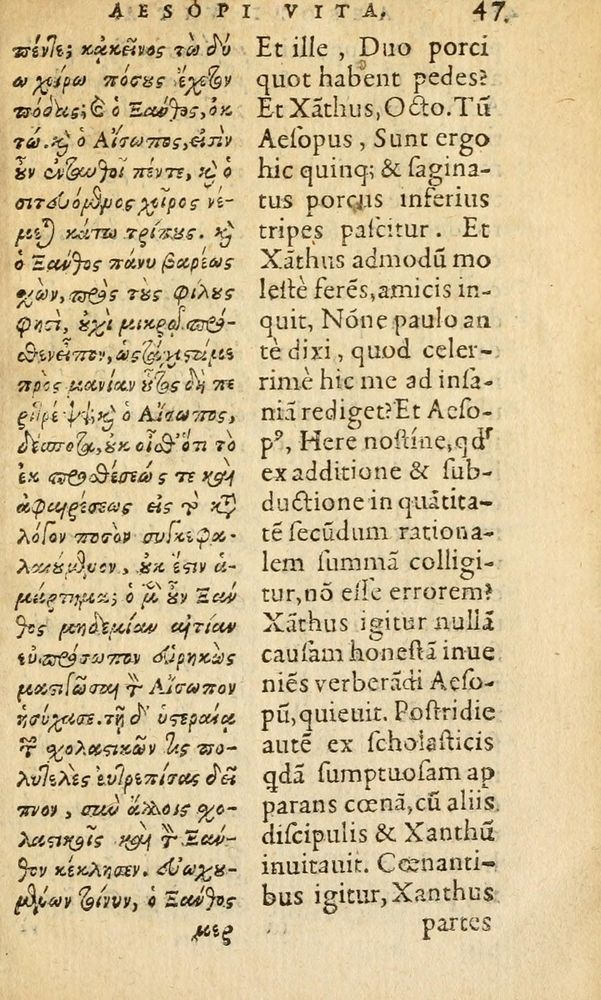 AESOPI VITA. 47.
πέντε; κἀκεῖνος τὼ δύ
ω χοίρω πόσους ἔχετον
πόδας; καὶ ὁ Ξάνθος, ὀκ
τώ. καὶ ὁ Αἴσωπος, εἰσὶν
οὖν ἐνταυθοῖ πέντε, καὶ ὁ
σιτευόμενος χοῖρος νέ-
μεται κάτω τρίπους. καὶ
ὁ Ξάνθος πάνυ βαρέως
σχὼν, πρὸς τοὺς φίλους
φησὶ, οὐχὶ μικρῷ πρό-
σθεν εἶπον, ὡς τάχιστά με
πρὸς μανίαν οὗτος δὴ πε
ριτρέψῃ; καὶ ὁ Αἴσωπος,
δέσποτα, οὐκ οἶσθ' ὅτι τὸ
ἐκ προσθέσεώς τε καὶ
ἀφαιρέσεως εἰς τὸν κατὰ
λόγον ποσὸν συγκεφα-
λαιούμενον, οὐκ ἔστιν ἁ-
μάρτημα; ὁ μὲν οὖν Ξάν
θος μηδεμίαν αἰτίαν
εὐπρόσωπον εὑρηκὼς
μαστιγῶσαι τὸν Αἴσωπον
ἡσύχασε. τῇ δ' ὑστεραίᾳ
τῶν σχολαστικῶν τις πο-
λυτελὲς εὐτρεπίσας δεῖ
πνον, σὺν ἄλλοις σχο-
λαστικοῖς καὶ τὸν Ξάν-
θον κέκλησεν. εὐωχου-
μένων τοίνυν, ὁ Ξάνθος
μερ
Et ille, Duo porci
quot habent pedes?
Et Xãthus, Octo. Tũ
Aeſopus, Sunt ergo
hic quinq; & ſagina-
tus porcus inferius
tripes paſcitur. Et
Xãthus admodũ mo
leſtè ferẽs, amicis in-
quit, Nõne paulo an
tè dixi, quod celer-
rimè hic me ad inſa-
niã rediget? Et Aeſo-
pꝰ, Here noſtíne, qđ
ex additione & ſub-
ductione in quãtita-
tẽ ſecũdum rationa-
lem ſummã colligi-
tur, nõ eſſe errorem?
Xãthus igitur nullã
cauſam honeſtã inue
niẽs verberãdi Aeſo-
pũ, quieuit. Poſtridie
autẽ ex ſcholaſticis
qdã ſumptuoſam ap
parans cœnã, cũ aliis
diſcipulis & Xanthũ
inuitauit. Cœnanti-
bus igitur, Xanthus
partes